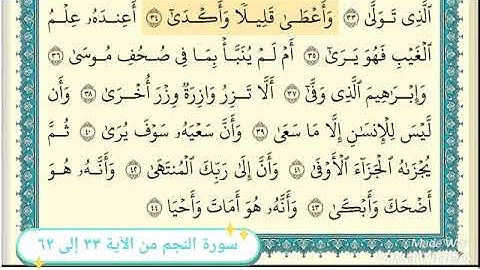 ٱلَّذِى تَوَلَّىٰ ٣٣ وَأَعْطَىٰ قَلِيلًا وَأَكْدَىٰٓ ٣٤ أَعِندَهُۥ عِلْمُ
ٱلْغَيْبِ فَهُوَ يَرَىٰٓ ٣٥ أَمْ لَمْ يُنَبَّأْ بِمَا فِى صُحُفِ مُوسَىٰ ٣٦
وَإِبْرَٰهِيمَ ٱلَّذِى وَفَّىٰٓ ٣٧ أَلَّا تَزِرُ وَازِرَةٌ وِزْرَ أُخْرَىٰ ٣٨ وَأَن
لَّيْسَ لِلْإِنسَٰنِ إِلَّا مَا سَعَىٰ ٣٩ وَأَنَّ سَعْيَهُۥ سَوْفَ يُرَىٰ ٤٠ ثُمَّ
يُجْزَىٰهُ ٱلْجَزَآءَ ٱلْأَوْفَىٰ ٤١ وَأَنَّ إِلَىٰ رَبِّكَ ٱلْمُنتَهَىٰ ٤٢ وَأَنَّهُۥ هُوَ
أَضْحَكَ وَأَبْكَىٰ ٤٣ وَأَنَّهُۥ هُوَ أَمَاتَ وَأَحْيَا ٤٤
سورة النجم من الآية ٣٣ إلى ٦٢
Made With